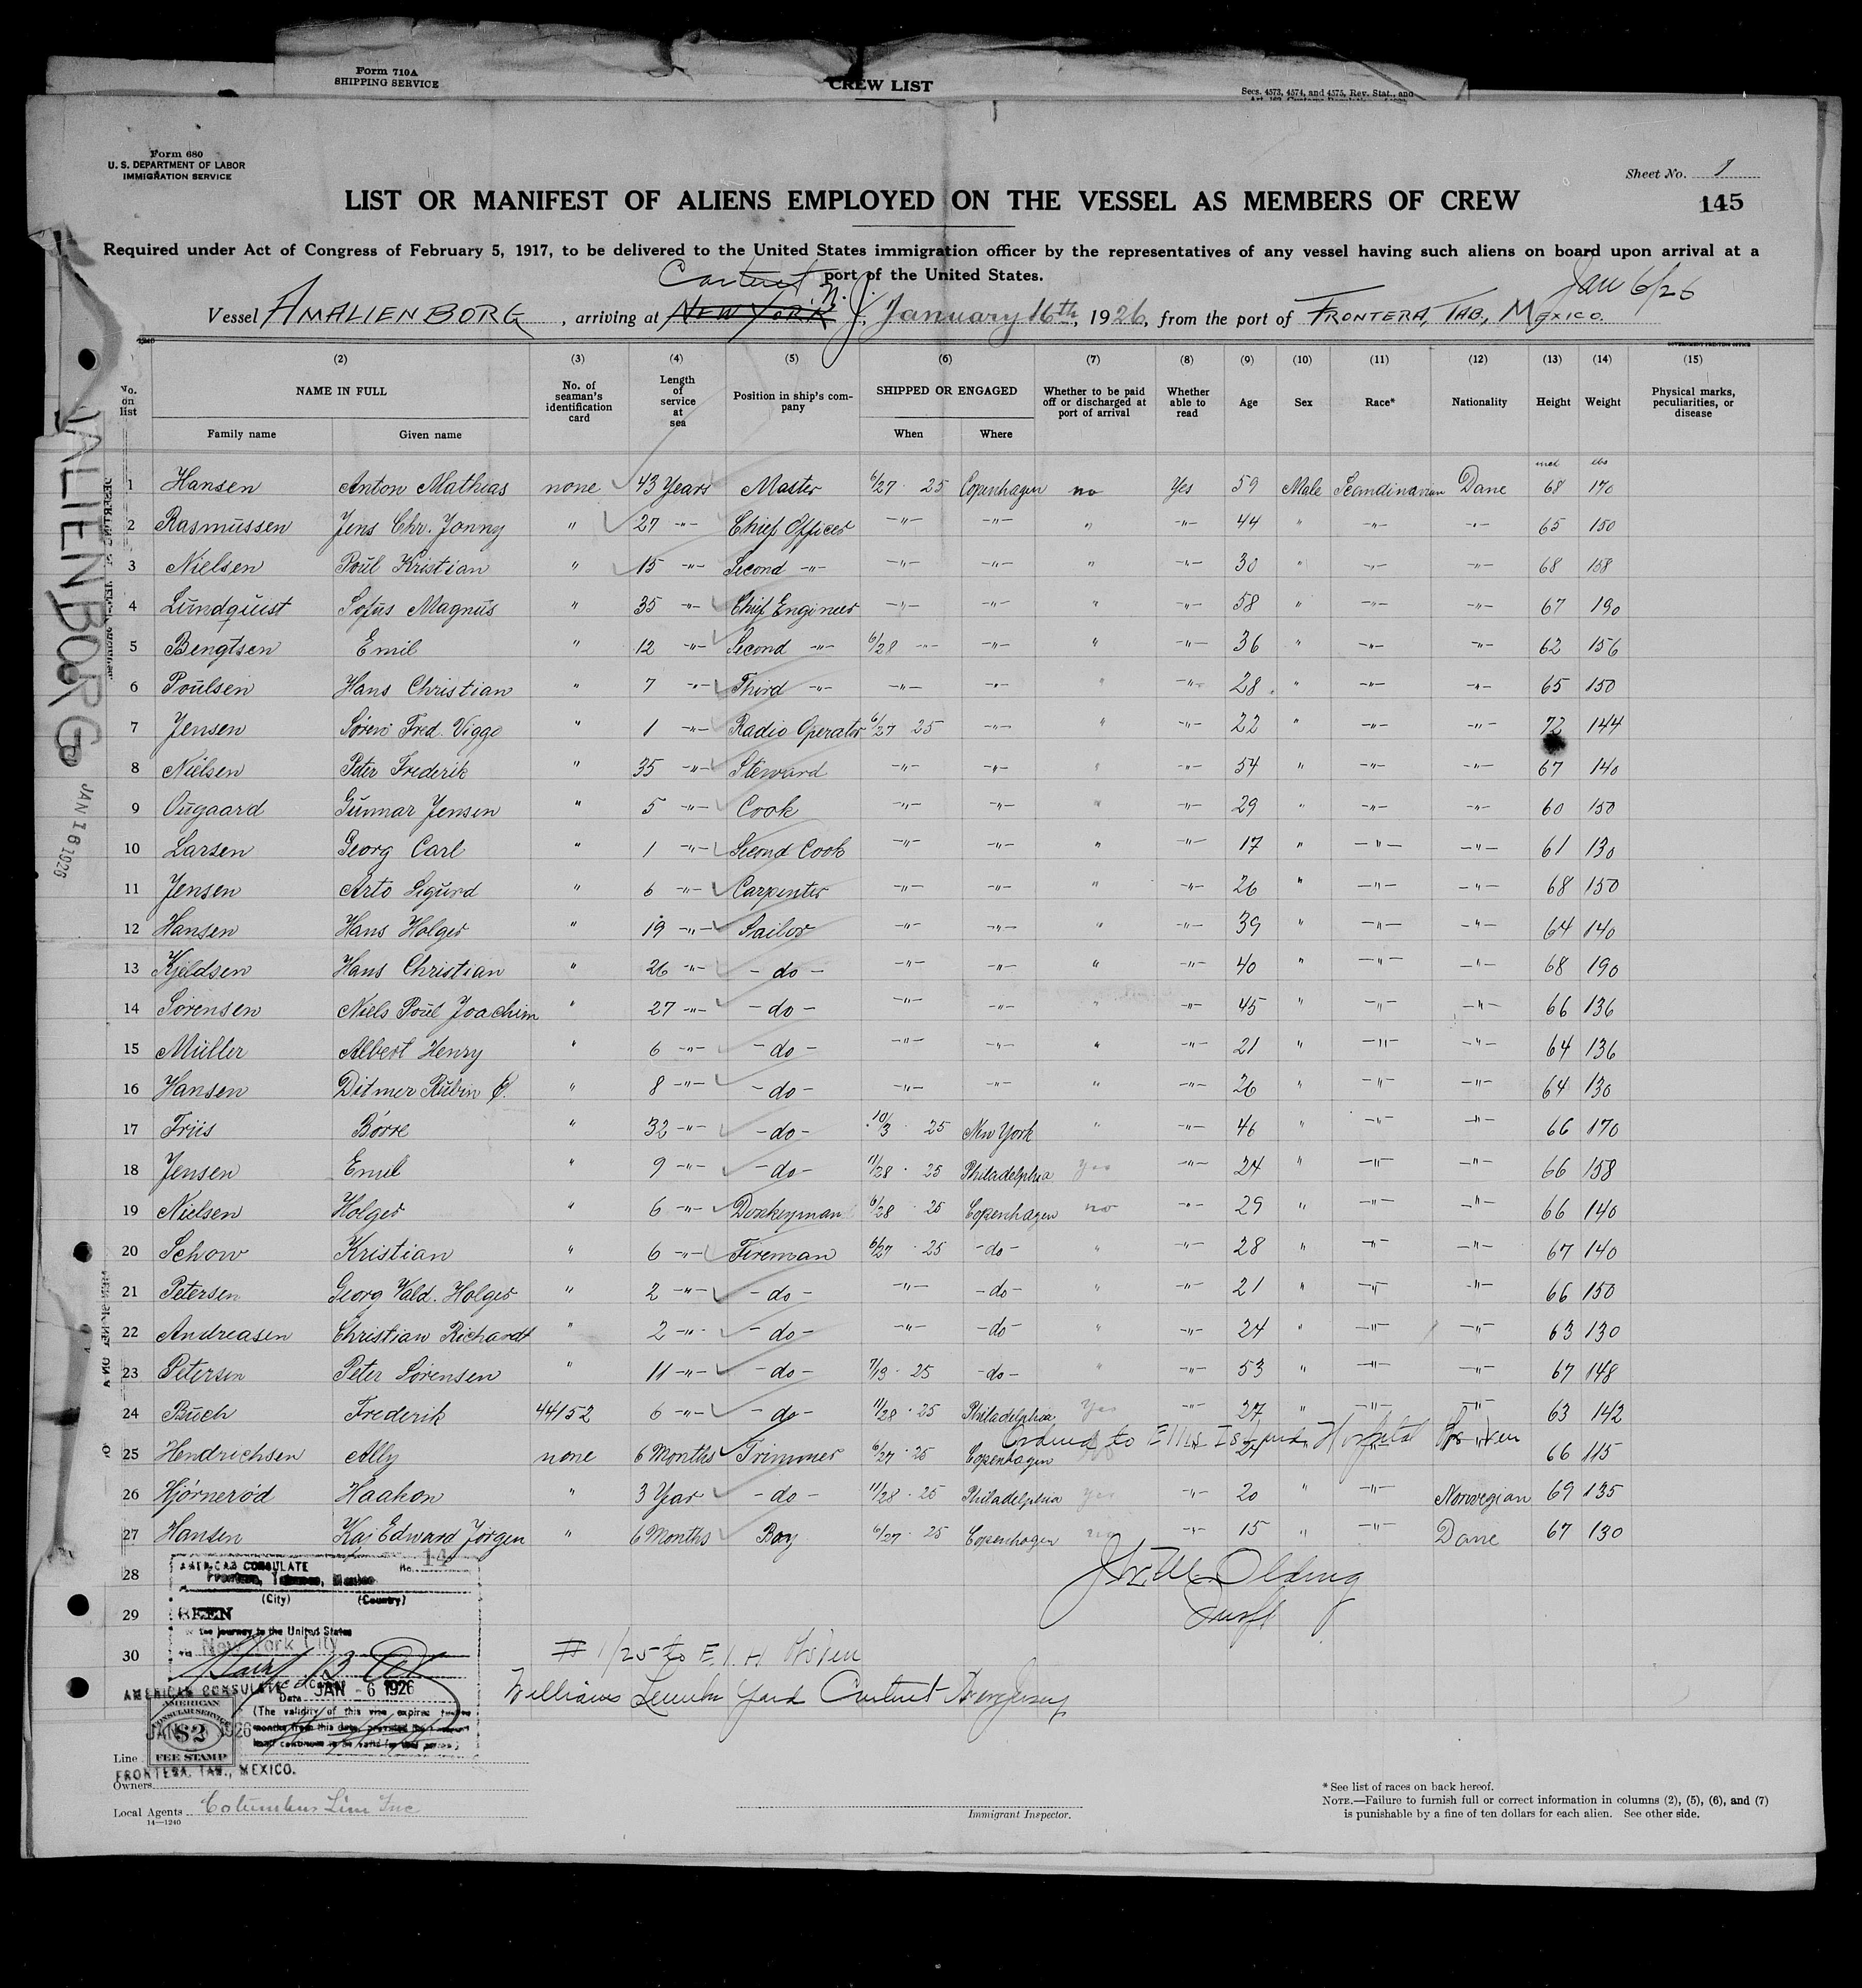 Form 710A
SHIPPING SERVICE
CREW LIST
Secs. 4573, 4574, and 4575, Rev. Stat., and
Form 680
U. S. DEPARTMENT OF LABOR
IMMIGRATION SERVICE
Sheet No. 1
LIST OR MANIFEST OF ALIENS EMPLOYED ON THE VESSEL AS MEMBERS OF CREW
145
Required under Act of Congress of February 5, 1917, to be delivered to the United States immigration officer by the representatives of any vessel having such aliens on board upon arrival at a
port of the United States.
Carteret N.J. Jan 6/26
Vessel AMALIENBORG, arriving at NEW YORK, January 16th, 1926, from the port of FRONTERA, TAB., MEXICO.
(2) (3) (4) (5) (6) (7) (8) (9) (10) (11) (12) (13) (14) (15)
No. on list NAME IN FULL Family name Given name No. of seaman's identification card Length of service at sea Position in ship's company SHIPPED OR ENGAGED When Where Whether to be paid off or discharged at port of arrival Whether able to read Age Sex Race* Nationality Height Weight Physical marks, peculiarities, or disease
lbs
1 Hansen Anton Mathias none 43 Years Master 6/27 · 25 Copenhagen no Yes 59 Male Scandinavian Dane 68 170
2 Rasmussen Jens Chr. Jonny " 27 -"- Chief Officer -"- -"- " -"- 44 " -"- -"- 65 150
3 Nielsen Poul Kristian " 15 -"- Second -"- -"- -"- " -"- 30 " -"- -"- 68 158
4 Lundquist Sofus Magnus " 35 -"- Chief Engineer -"- -"- " -"- 58 " -"- -"- 67 190
5 Bengtsen Emil " 12 -"- Second -"- 6/28 -"- -"- " -"- 36 " -"- -"- 62 156
6 Poulsen Hans Christian " 7 -"- Third -"- -"- -"- " -"- 28 " -"- -"- 65 150
7 Jensen Søren Fred. Viggo " 1 -"- Radio Operator 6/27 25 -"- " -"- 22 " -"- -"- 72 144
8 Nielsen Peter Frederik " 35 -"- Steward -"- -"- " -"- 54 " -"- -"- 67 140
9 Ougaard Gunnar Jensen " 5 -"- Cook -"- -"- " -"- 29 " -"- -"- 60 150
10 Larsen Georg Carl " 1 -"- Second Cook -"- -"- " -"- 17 " -"- -"- 61 130
11 Jensen Arto Sigurd " 6 -"- Carpenter -"- -"- " -"- 26 " -"- -"- 68 150
12 Hansen Hans Holger " 19 -"- Sailor -"- -"- " -"- 39 " -"- -"- 64 140
13 Kjeldsen Hans Christian " 26 -"- - do - -"- -"- " -"- 40 " -"- -"- 68 190
14 Sørensen Niels Poul Joachim " 27 -"- - do - -"- -"- " -"- 45 " -"- -"- 66 136
15 Müller Albert Henry " 6 -"- - do - -"- -"- " -"- 21 " -"- -"- 64 136
16 Hansen Ditmer Rubin " 8 -"- - do - -"- -"- " -"- 26 " -"- -"- 64 130
17 Friis Børre " 32 -"- - do - 10/3 · 25 New York " -"- 46 " -"- -"- 66 170
18 Jensen Emil " 9 -"- - do - 11/28 · 25 Philadelphia Yes -"- 24 " -"- -"- 66 158
19 Nielsen Holger " 6 -"- Donkeyman 6/28 · 25 Copenhagen no -"- 29 " -"- -"- 66 140
20 Schow Kristian " 6 -"- Fireman 6/27 · 25 - do - " -"- 28 " -"- -"- 67 140
21 Petersen Georg Vald. Holger " 2 -"- - do - -"- - do - " -"- 21 " -"- -"- 66 150
22 Andreasen Christian Richardt " 2 -"- - do - -"- - do - " -"- 24 " -"- -"- 63 130
23 Petersen Peter Sørensen " 11 -"- - do - 7/13 · 25 - do - " -"- 53 " -"- -"- 67 148
24 Buch Frederik 44152 6 -"- - do - 11/28 · 25 Philadelphia Yes -"- 27 " -"- -"- 63 142
Ordered to Ellis Island Hospital
25 Hendrichsen Ally none 6 Months Trimmer 6/27 · 25 Copenhagen 66 115
26 Hjørnerød Haakon " 3 Year - do - 11/28 · 25 Philadelphia yes -"- 20 " -"- Norwegian 69 135
27 Hansen Kaj Edward Jørgen " 6 Months Boy 6/27 · 25 Copenhagen no -"- 15 " -"- Dane 67 130
28
29
30
AMERICAN CONSULATE No. 14
Frontera, Tabasco, Mexico
(City) (Country)
SEEN
the journey to the United States
New York City
# 1/25 to E. I. H
AMERICAN CONSULATE
Date JAN - 6 1926
Williams Lumber Yard Carteret New Jersey
(The validity of this vise expires
months from this date, provided the
AMERICAN CONSULAR SERVICE $2 FEE STAMP
1926
Line
FRONTERA, TAB., MEXICO.
Owners
Local Agents Columbus Line Inc
14—1240
Immigrant Inspector.
* See list of races on back hereof.
NOTE.—Failure to furnish full or correct information in columns (2), (5), (6), and (7)
is punishable by a fine of ten dollars for each alien. See other side.
ALIENBORG
JAN 16 1926